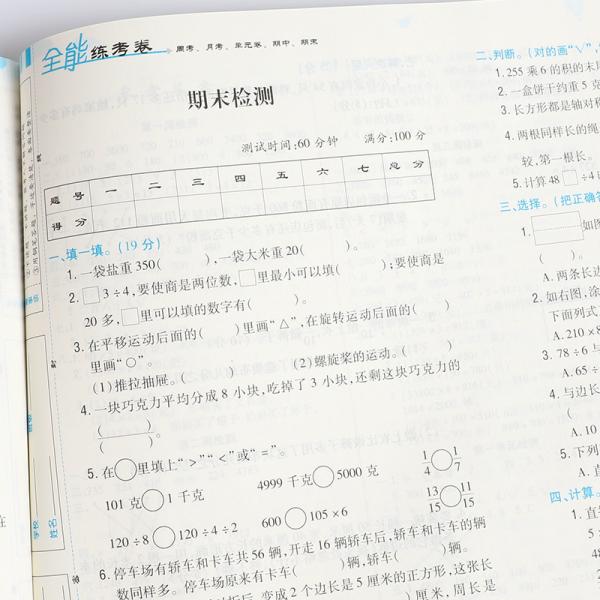 全能练考卷
周考、月考、单元卷、期中、期末
期末检测
测试时间:60分钟 满分:100分
题号 一 二 三 四 五 六 七 总分
得分
一、填一填。(19分)
1.一袋盐重350( ),一袋大米重20( )。
2.□3÷4,要使商是两位数,□里最小可以填( );要使商是
20多,□里可以填的数字有( )。
3.在平移运动后面的( )里画“△”,在旋转运动后面的( )
里画“○”。
(1)推拉抽屉。( ) (2)螺旋桨的运动。( )
4.一块巧克力平均分成8小块,吃掉了3小块,还剩这块巧克力的
( )
( )。
5.在○里填上“>”“<”或“=”。
101克○1千克 4999千克○5000克 1/4○1/7
120÷8○120÷4÷2 600○105×6 13/15○11/15
6.停车场有轿车和卡车共56辆,开走16辆轿车后,轿车和卡车的辆
数同样多。停车场原来有卡车( )辆,轿车( )辆。
变成2个边长是5厘米的正方形,这张长
)厘米,周长是
二、判断。(对的画“√”,
1.255乘6的积的末尾
2.一盒饼干约重5克
3.长方形都是轴对称
4.两根同样长的绳
较,第一根长。
5.计算48□÷4
三、选择。(把正确答
1.
(
A.两条长边
2.如右图,涂
下面列式
A.210×8
3.78÷6与
A.65÷
4.与边长
(
A.10
5.下列
A.直
四、计算。
1.直
5
4
2.
学校
姓名